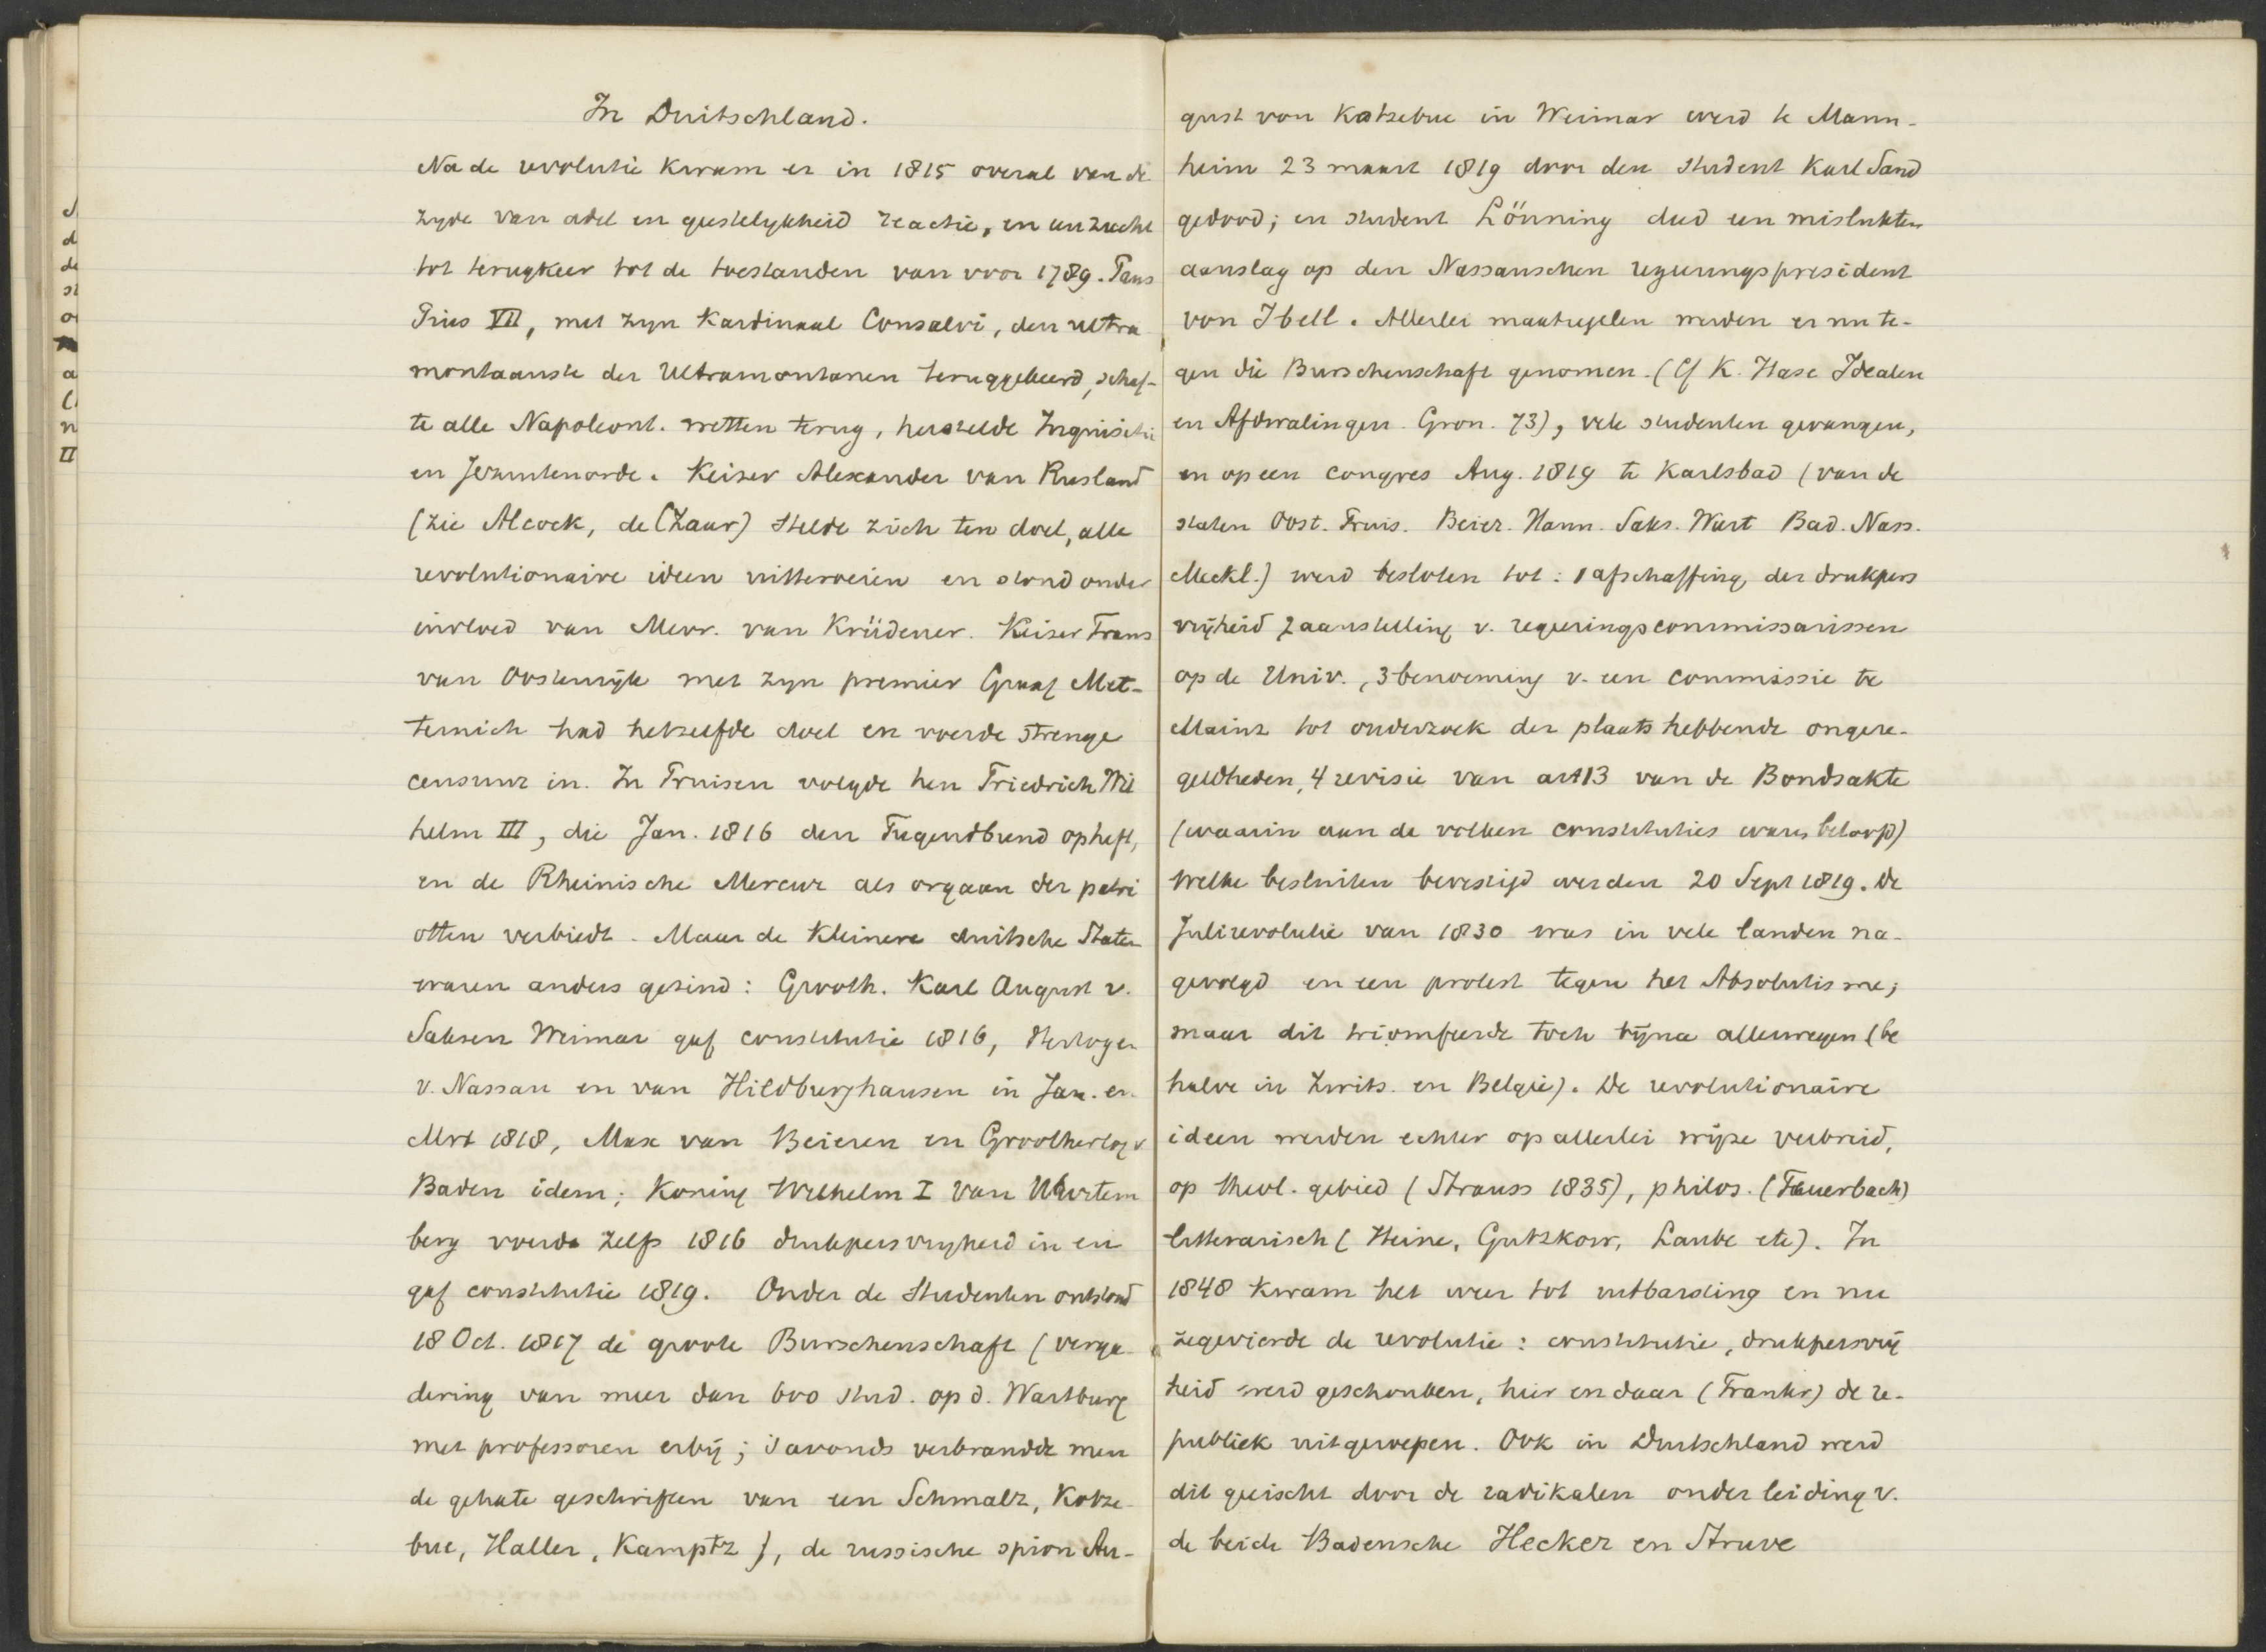 In Duitschland.
Na de revolutie kwam er in 1815 overal van de
zyde van adel en geestelykheid reactie, en een zucht
tot terugkeer tot de toestanden van voor 1789. Paus
Pius VII, met zyn Kardinaal Consalvi, den ultra
montaanste der Ultramontanen teruggekeerd, schaf-
te alle Napoleont. wetten terug, herstelde Inquisitie
en Jezuitenorde. Keizer Alexander van Rusland
(zie Alcock, de CZaar) stelde zich ten doel, alle
revolutionaire ideen uitteroeien en stond onder
invloed van Mevr. van Krüdener. Keizer Frans
van Oostenryk met zyn premier Graaf Met-
ternich had hetzelfde doel en voerde strenge
censuur in. In Pruisen volgde hen Friedrich Wil
helm III, die Jan. 1816 den Tugendbund opheft,
en de Rheinische Mercur als orgaan der patri
otten verbiedt. Maar de Kleinere duitsche Staten
waren anders gezind: Grooth. Karl August v.
Saksen Weimar gaf constitutie 1816, Hertogen
v. Nassau en van Hildburghausen in Jan. en
Mrt 1818, Max van Beieren en Groothertog v
Baden idem; Koning Wilhelm I van Wurtem
berg voerde zelfs 1816 drukpersvryheid in en
gaf constitutie 1819. Onder de Studenten ontstond
18 Oct. 1817 de groote Burschenschaft (verga-
dering van meer dan 600 stud. op d. Wartburg
met professoren erbij; 's avonds verbrandde men
de gehate geschriften van een Schmalz, Kotze-
bue, Haller, Kamptz), de russische spion Au-
gust von Kotzebue in Weimar werd te Mann-
heim 23 maart 1819 door den student Karl Sand
gedood; en student Lönning deed een mislukten
aanslag op den Nassauschen regeringspresident
von Ibell. Allerlei maatregelen werden er nu te-
gen die Burschenschaft genomen. (Cf K. Hase Idealen
en Afdwalingen Gron. 73), vele studenten gevangen,
en op een congres Aug. 1819 te Karlsbad (van de
staten Oost. Pruis. Beier. Hann. Saks. Wurt Bad. Nass.
Meckl.) werd besloten tot: 1 afschaffing der drukpers
vrijheid 2 aanstelling v. regeeringscommissarissen
op de Univ., 3 benoeming v. een commissie te
Mainz tot onderzoek der plaats hebbende ongere-
geldheden, 4 revisie van art 13 van de Bondsakte
(waarin aan de volken constituties waren beloofd)
welke besluiten bevestigd werden 20 Sept 1819. De
Julirevolutie van 1830 was in vele landen na-
gevolgd en een protest tegen het Absolutisme;
maar dit triomfeerde toch bijna allerwegen (be
halve in Zwits. en Belgie). De revolutionaire
ideen werden echter op allerlei wijze verbreid,
op theol. gebied (Strauss 1835), philos. (Feuerbach)
litterarisch (Heine, Gutzkow, Laube etc). In
1848 kwam het weer tot uitbarsting en nu
zegevierde de revolutie: constitutie, drukpersvrij
heid werd geschonken, hier en daar (Frankr) de re-
publiek uitgeroepen. Ook in Duitschland werd
dit geëischt door de radikalen onder leiding v.
de beide Badensche Hecker en Struve